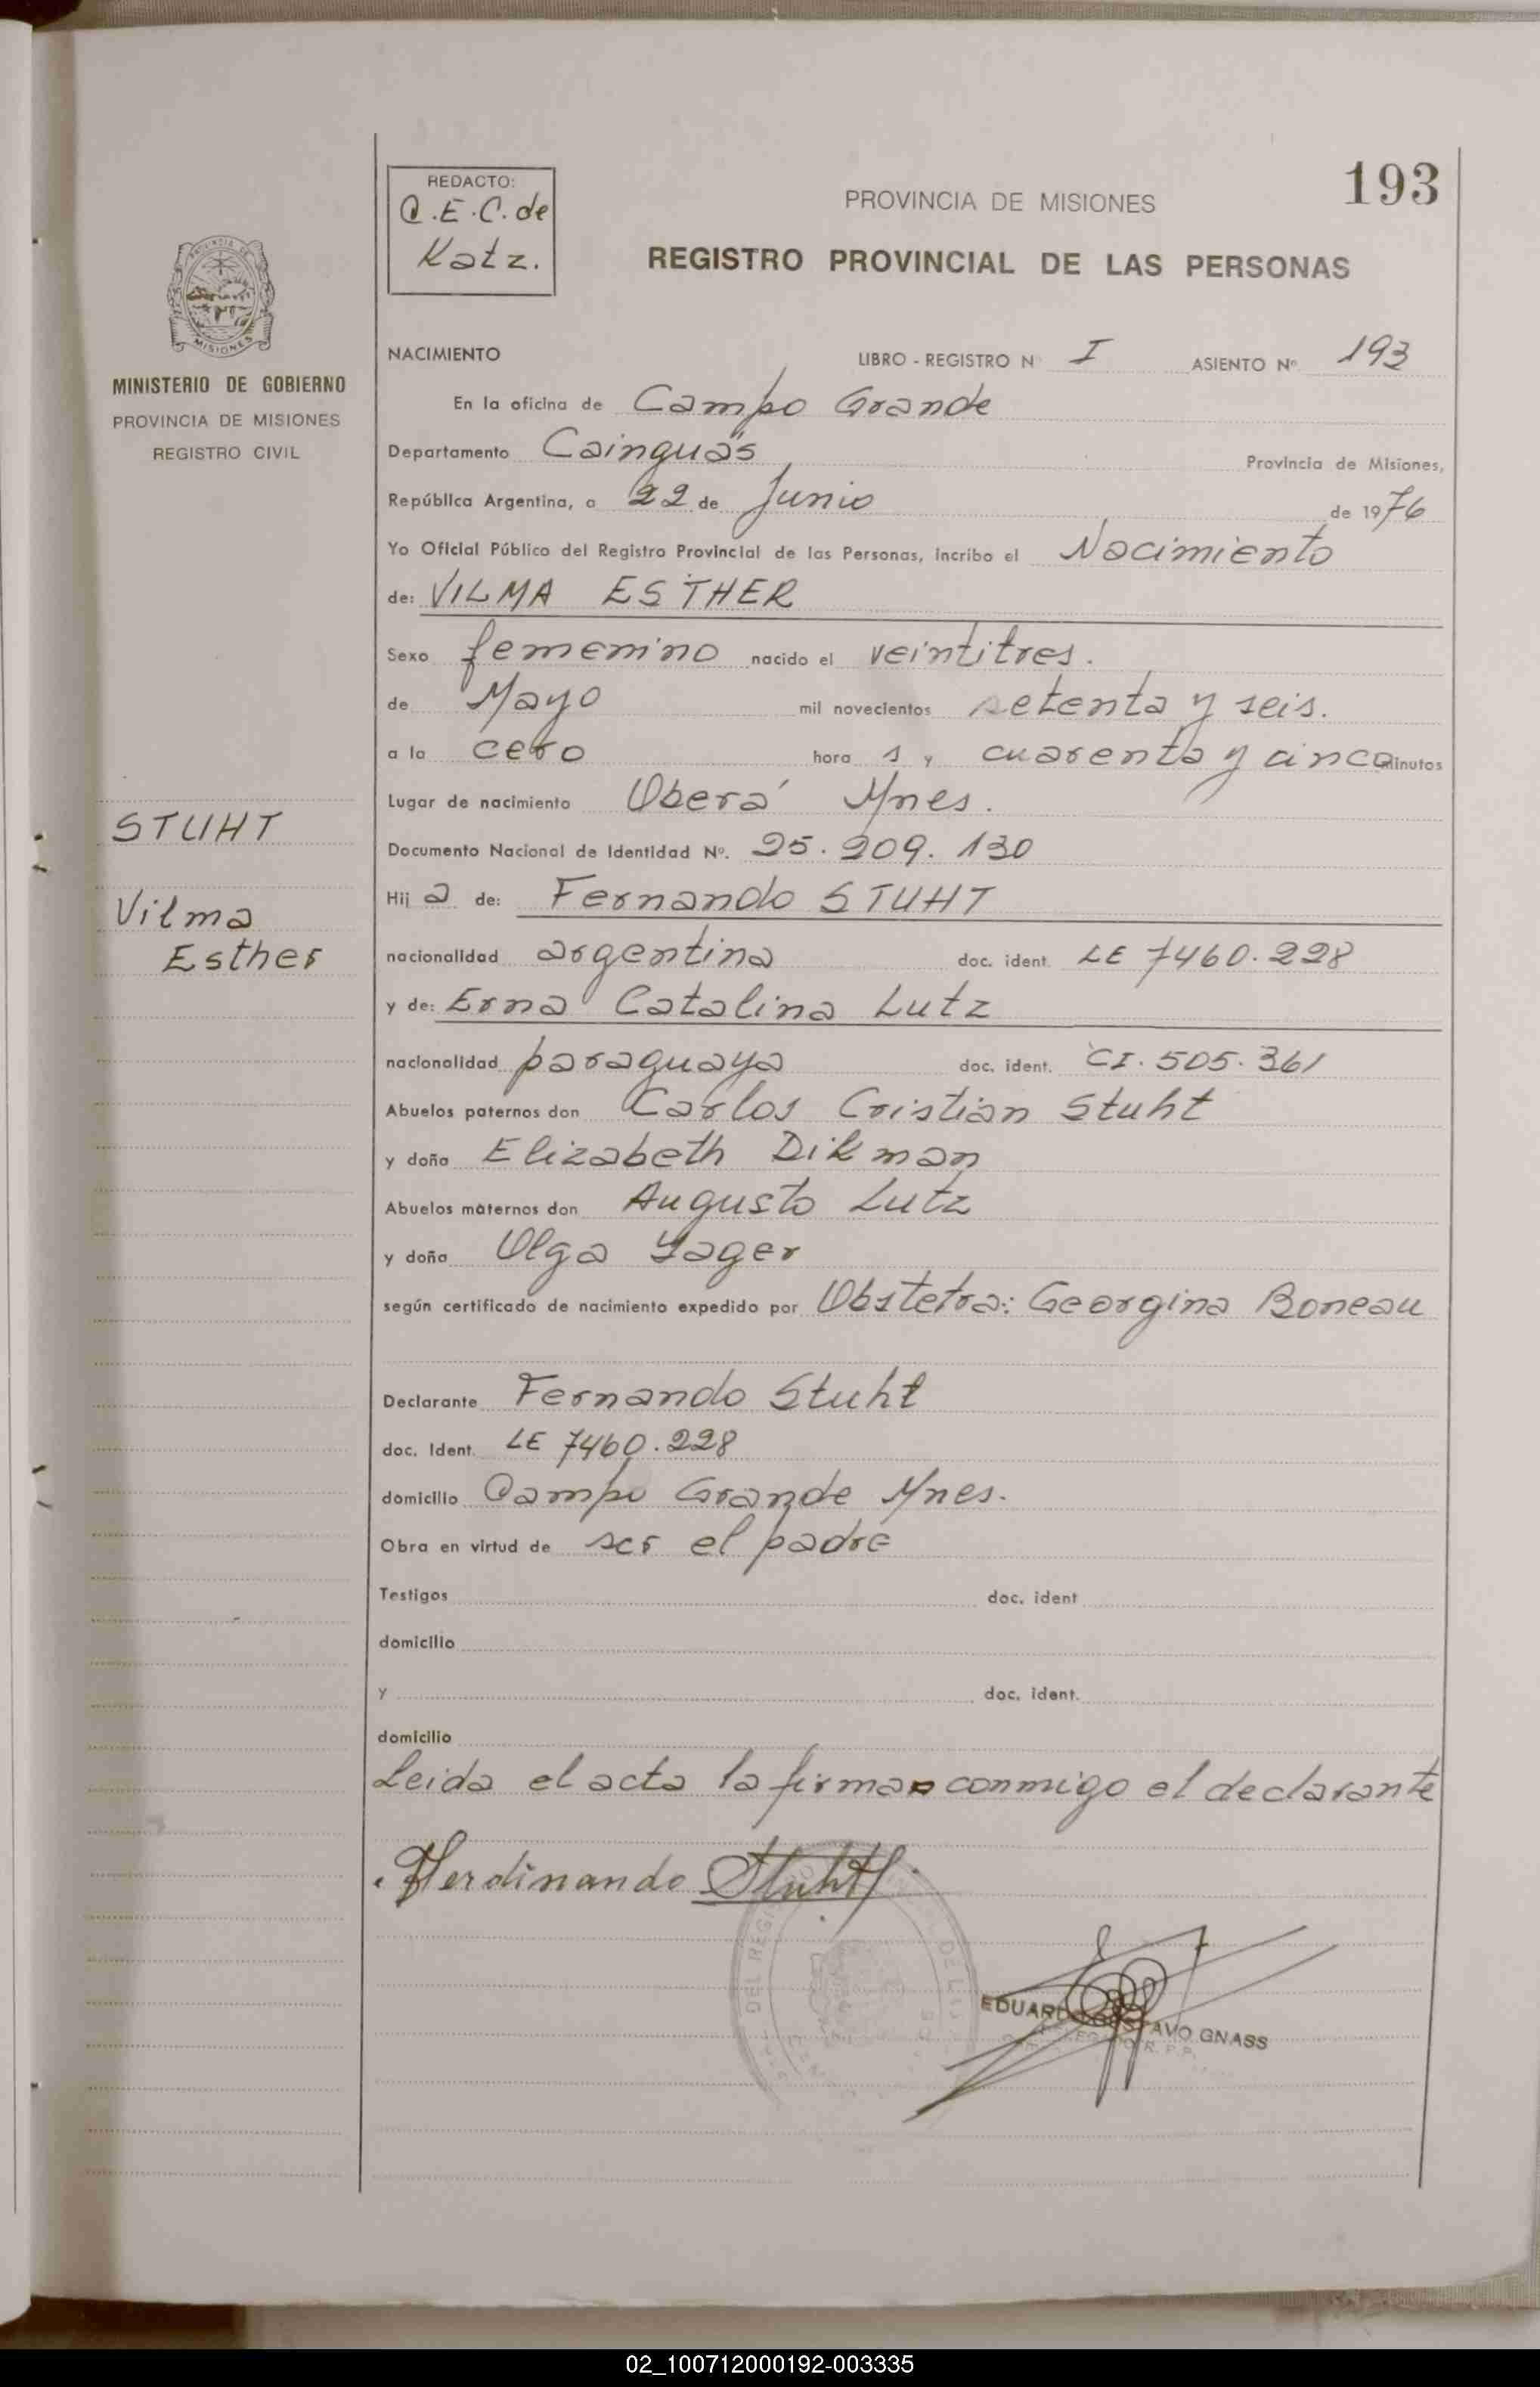 193
REDACTO:
C.E.C. de
Katz.
PROVINCIA DE MISIONES
REGISTRO PROVINCIAL DE LAS PERSONAS
MISIONES
MINISTERIO DE GOBIERNO
PROVINCIA DE MISIONES
REGISTRO CIVIL
NACIMIENTO LIBRO - REGISTRO N° I ASIENTO N° 193
En la oficina de Campo Grande
Departamento Cainguás Provincia de Misiones,
República Argentina, a 22 de Junio de 1976
Yo Oficial Público del Registro Provincial de las Personas, incribo el Nacimiento
de: VILMA ESTHER
Sexo femenino nacido el veintitres.
de Mayo mil novecientos setenta y seis.
a la cero hora s y cuarenta y cinco minutos
Lugar de nacimiento Oberá Mnes.
Documento Nacional de Identidad N°. 25.209.130
Hij a de: Fernando STUHT
nacionalidad argentina doc. ident. LE 7460.228
y de: Erna Catalina Lutz
nacionalidad paraguaya doc. ident. CI. 505.361
Abuelos paternos don Carlos Cristian Stuht
y doña Elizabeth Dikman
Abuelos maternos don Augusto Lutz
y doña Olga Yager
según certificado de nacimiento expedido por Obstetra: Georgina Boneau
Declarante Fernando Stuht
doc. Ident. LE 7460.228
domicilio Campo Grande Mnes.
Obra en virtud de ser el padre
Testigos doc. ident
domicilio
y doc. ident.
domicilio
Leida el acta la firma conmigo el declarante
Ferdinando Stuht
EDUARDO GUSTAVO GNASS
DELEGADO R.P.P.
STUHT
Vilma
Esther
02_100712000192-003335